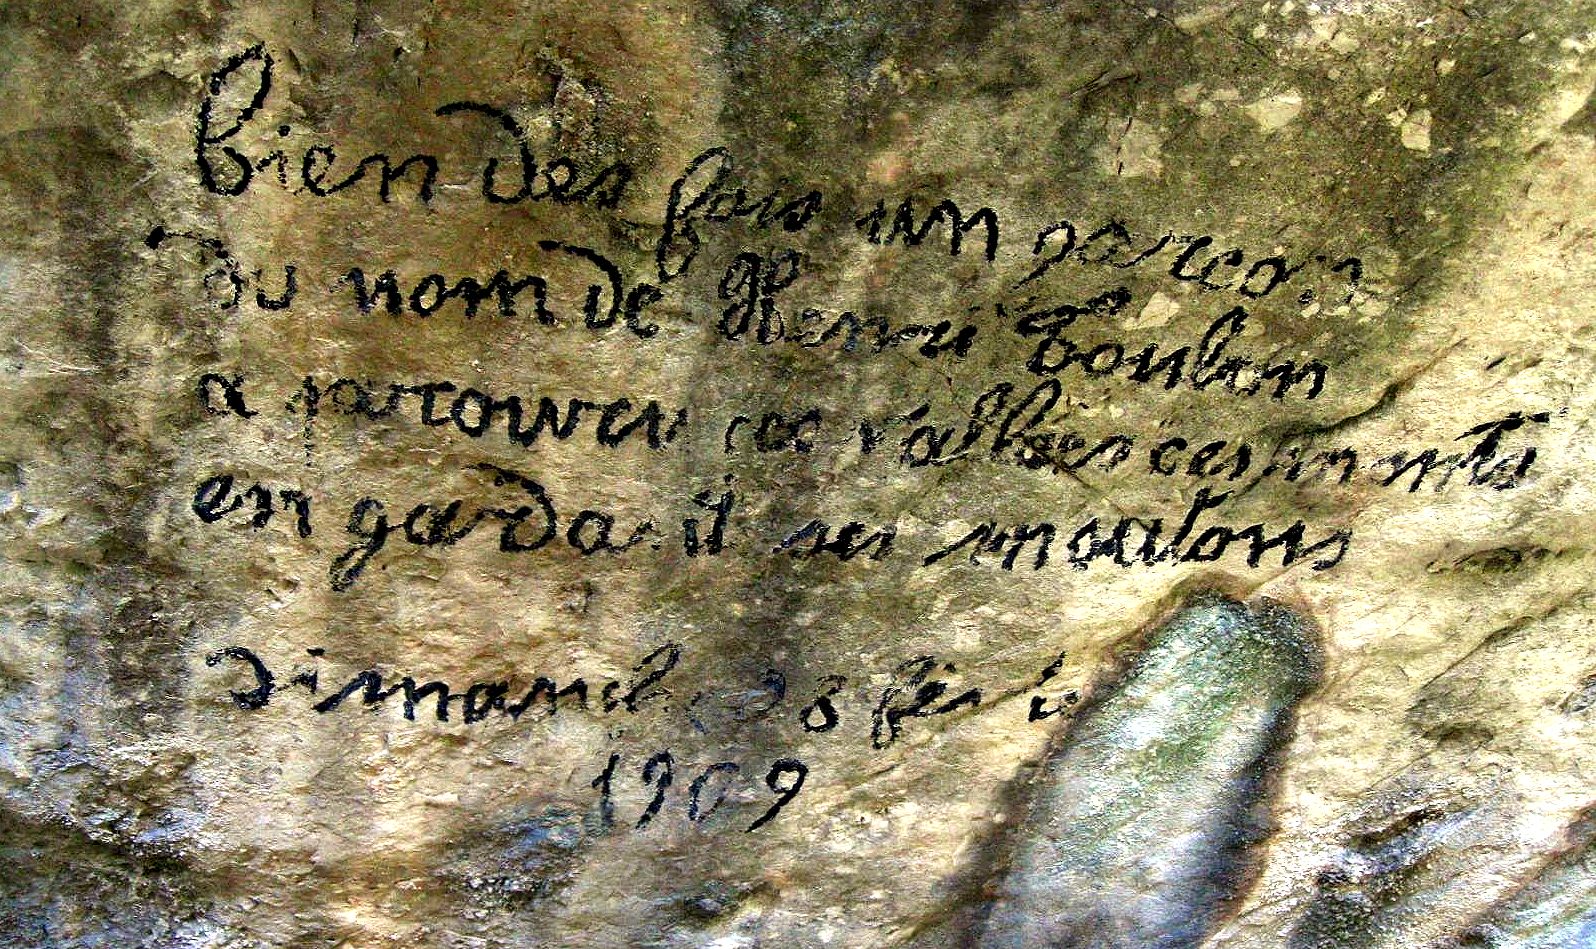 bien des fois un garcon
du nom de Henri Boulon
a parcouru ces vallées ces monts
en gardant ses moutons
dimanche 28 fév
1909